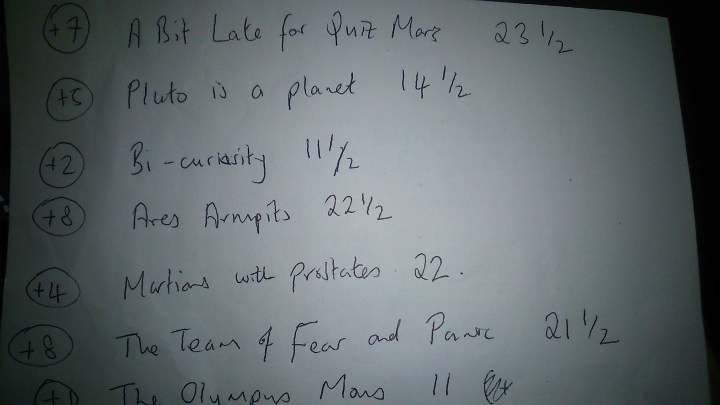 +7 A Bit Late for Quiz Mars 23 1/2
+5 Pluto is a planet 14 1/2
+2 Bi-curiosity 11 1/2
+8 Ares Armpits 22 1/2
+4 Martians with Prostates 22.
+8 The Team of Fear and Panic 21 1/2
The Olympus Mons 11